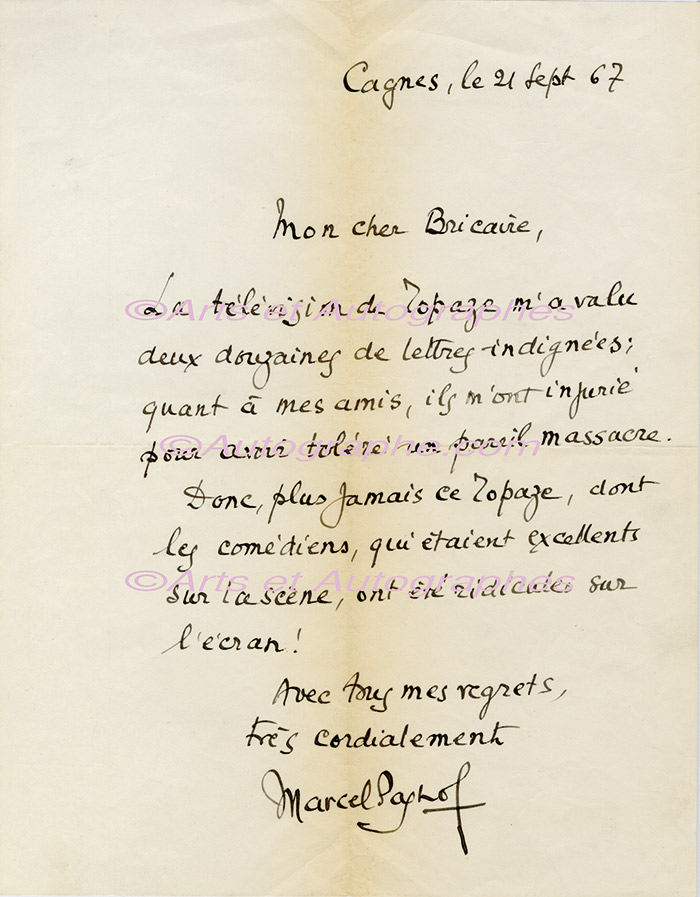 Cagnes, le 21 Sept 67
Mon cher Bricaire,
La télévision de Topaze m'a valu
©Arts et Autographes
deux douzaines de lettres indignées;
quant à mes amis, ils m'ont injurié
pour avoir toléré un pareil massacre.
©Autographe.com
Donc, plus jamais ce Topaze, dont
les comédiens, qui étaient excellents
sur la scène, ont été ridicules sur
©Arts et Autographes
l'écran!
Avec tous mes regrets,
très cordialement
Marcel Pagnol